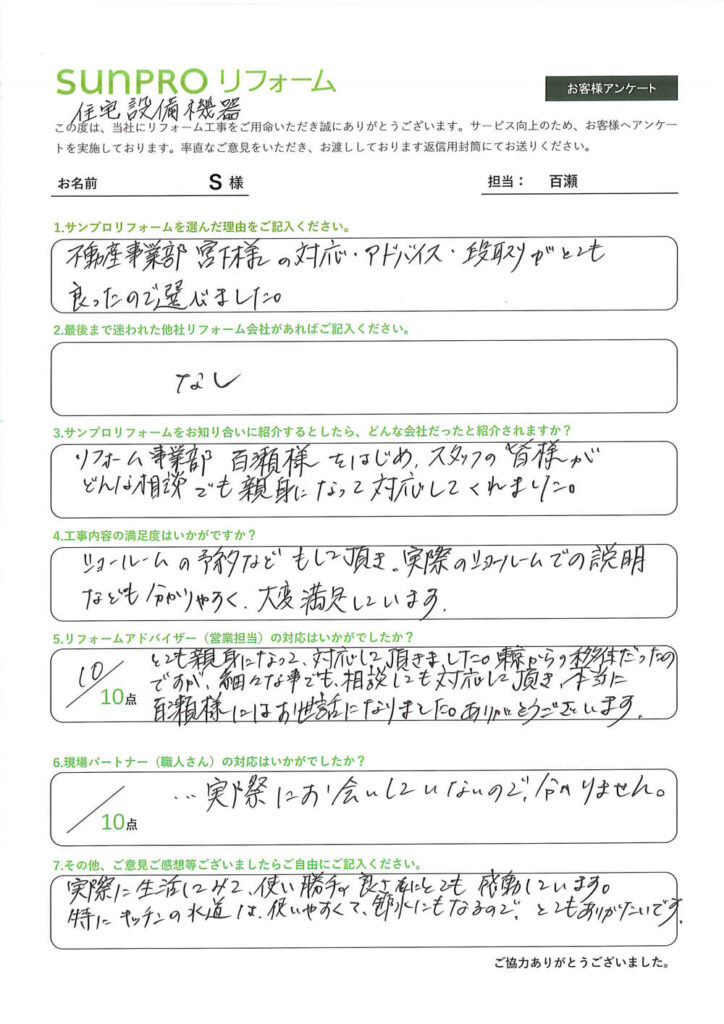 sunPRO リフォーム
お客様アンケート
住宅設備機器
この度は、当社にリフォーム工事をご用命いただき誠にありがとうございます。サービス向上のため、お客様へアンケー
トを実施しております。率直なご意見をいただき、お渡ししております返信用封筒にてお送りください。
お名前 S 様 担当： 百瀬
1.サンプロリフォームを選んだ理由をご記入ください。
不動産事業部 宮下様の対応・アドバイス・段取りがとても
良ったので選びました。
2.最後まで迷われた他社リフォーム会社があればご記入ください。
なし
3.サンプロリフォームをお知り合いに紹介するとしたら、どんな会社だったと紹介されますか？
リフォーム事業部 百瀬様をはじめ、スタッフの皆様が
どんな相談でも親身になって対応してくれました。
4.工事内容の満足度はいかがですか？
ショールームの予約などもして頂き。実際のショールームでの説明
なども分かりやすく、大変満足しています。
5.リフォームアドバイザー（営業担当）の対応はいかがでしたか？
10／10点
とても親身になって、対応して頂きました。東京からの移住だったの
ですが、細々な事でも、相談しても対応して頂き、本当に
百瀬様にはお世話になりました。ありがとうございます。
6.現場パートナー（職人さん）の対応はいかがでしたか？
／10点
…実際にお会いしていないので、分かりません。
7.その他、ご意見ご感想等ございましたらご自由にご記入ください。
実際に生活してみて、使い勝手の良さなどとても感動しています。
特にキッチンの水道は、使いやすくて、節水にもなるので、とてもありがたいです。
ご協力ありがとうございました。